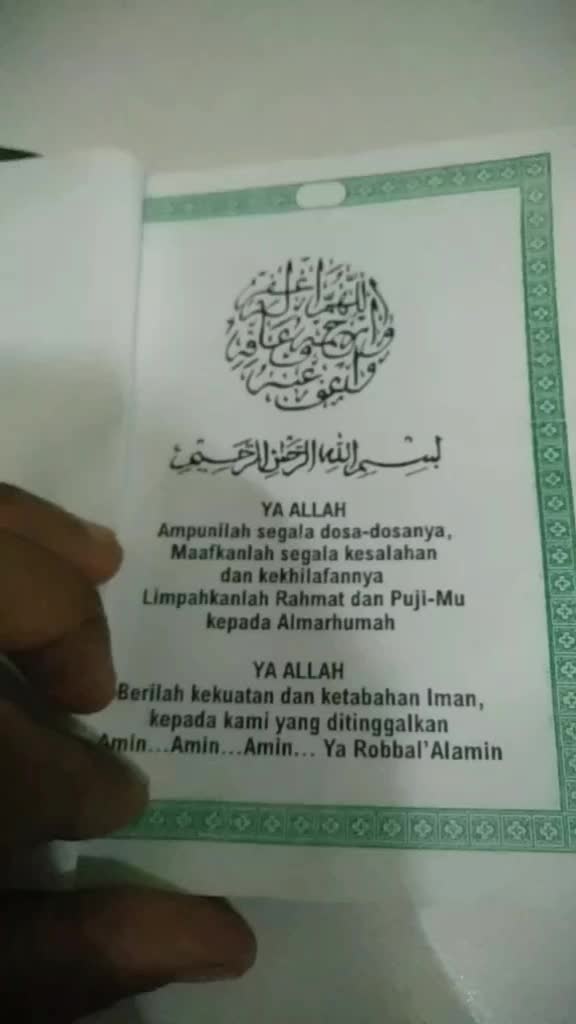 اللهم اغفر له
وارحمه وعافه
واعف عنه
بسم الله الرحمن الرحيم
YA ALLAH
Ampunilah segala dosa-dosanya,
Maafkanlah segala kesalahan
dan kekhilafannya
Limpahkanlah Rahmat dan Puji-Mu
kepada Almarhumah
YA ALLAH
Berilah kekuatan dan ketabahan Iman,
kepada kami yang ditinggalkan
Amin...Amin...Amin... Ya Robbal'Alamin